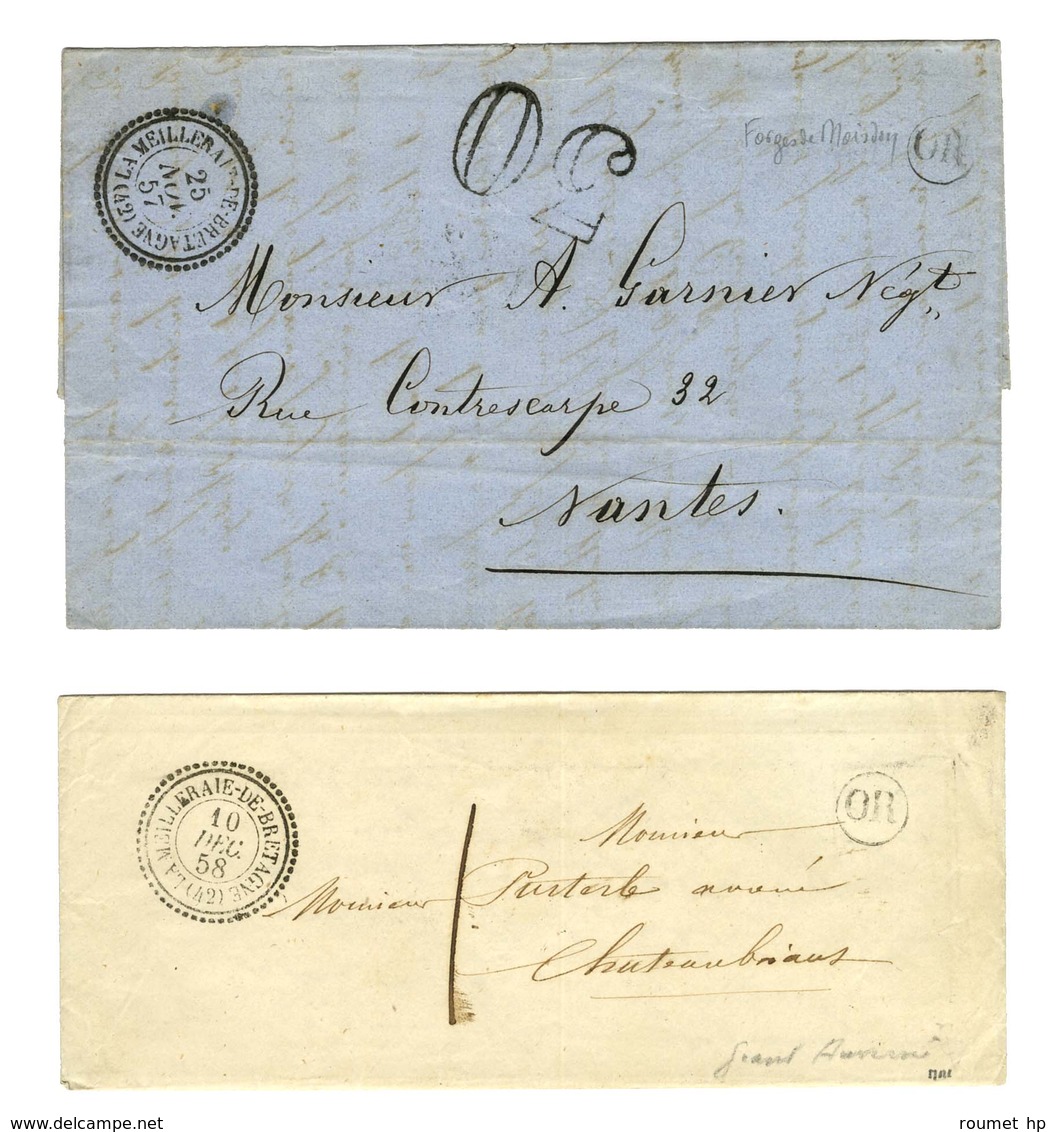 LA MEILLERAIE-DE-BRETAGNE (42)
25
NOV.
57
OR
Forges de Moisdon
Monsieur A. Garnier Négt
Rue Contrescarpe 32
Nantes.
LA MEILLERAIE-DE-BRETAGNE (42)
10
DEC.
58
OR
1
Monsieur
Monsieur
Chateaubriant
Grand Auverné
roumet hp